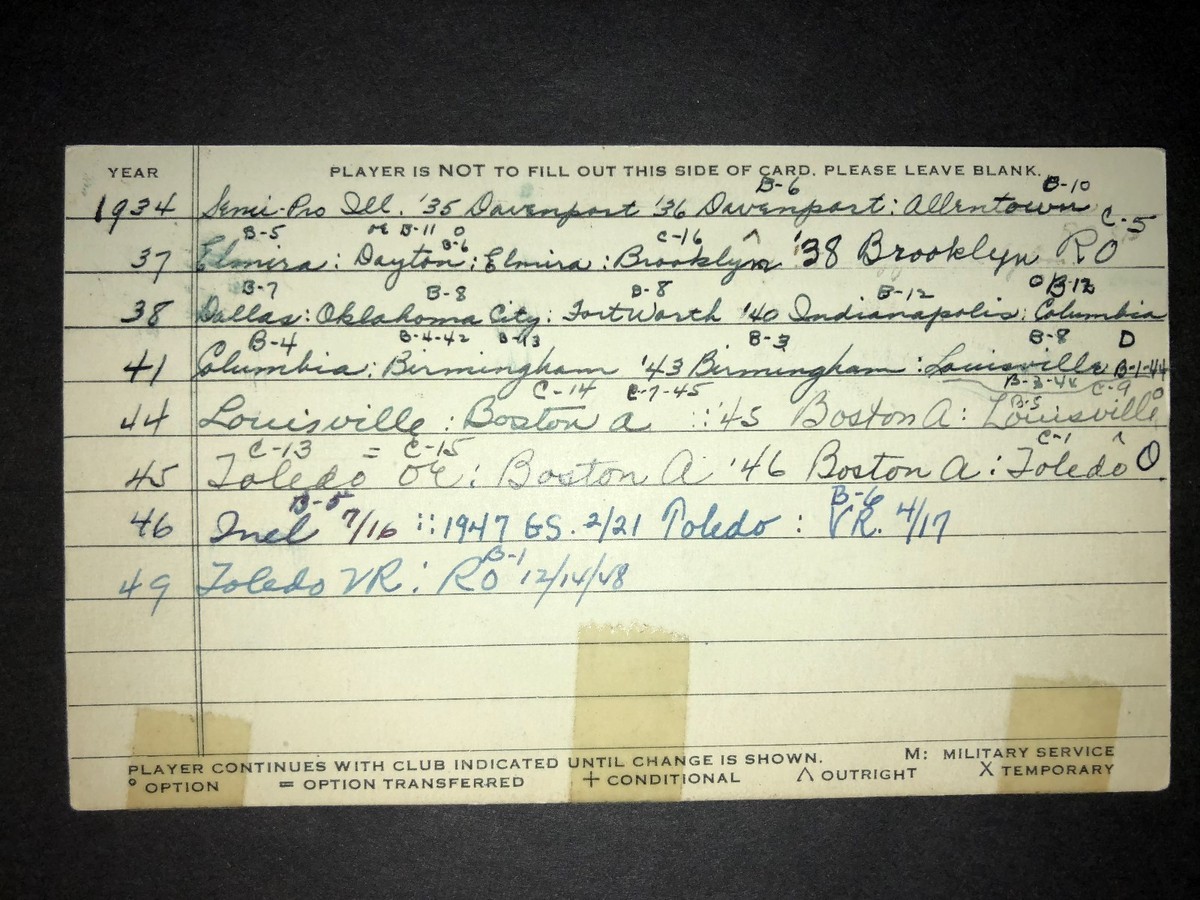 YEAR PLAYER IS NOT TO FILL OUT THIS SIDE OF CARD. PLEASE LEAVE BLANK.
B-6 B-10
1934 Semi-Pro Ill. '35 Davenport '36 Davenport: Allentown C-5
B-5 B-11 O B-6 C-16 ^
37 Elmira: Dayton: Elmira: Brooklyn '38 Brooklyn RO
B-7 B-8 B-8 B-12 O B-12
38 Dallas: Oklahoma City: Fort Worth '40 Indianapolis: Columbia
B-4 B-4-42 B-3 B-8 D
41 Columbia: Birmingham '43 Birmingham: Louisville B-1-44
C-14 C-7-45 B-5 C-9 O
44 Louisville: Boston A :: '45 Boston A: Louisville
C-13 = C-15 C-1 ^
45 Toledo OE: Boston A '46 Boston A: Toledo O
B-5 B-6
46 Inel 7/16 :: 1947 GS. 2/21 Toledo: VR. 4/17
B-1
49 Toledo VR: RO 12/14/48
PLAYER CONTINUES WITH CLUB INDICATED UNTIL CHANGE IS SHOWN. M: MILITARY SERVICE
° OPTION = OPTION TRANSFERRED + CONDITIONAL ^ OUTRIGHT X TEMPORARY